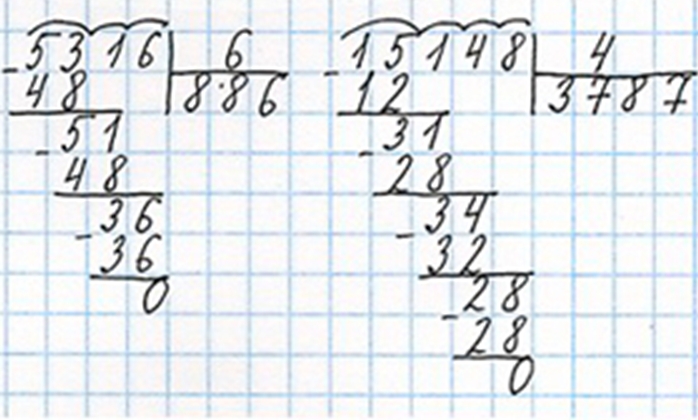 -5316 | 6
48 | 886
-51
48
-36
36
0
-15148 | 4
12 | 3787
-31
28
-34
32
-28
28
0